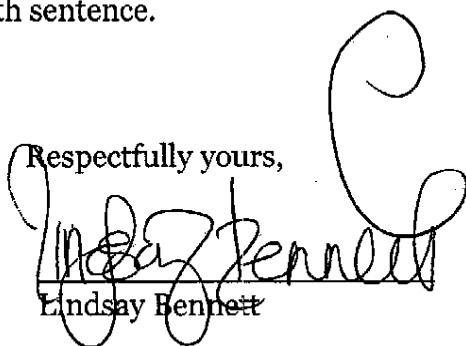 th sentence.
Respectfully yours,
Lindsay Bennett
Lindsay Bennett